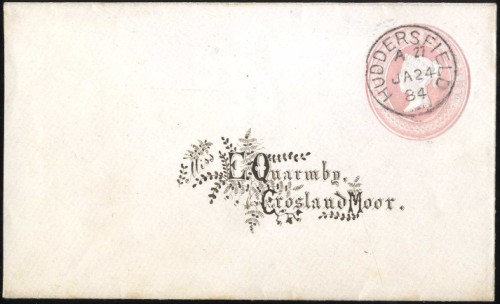 HUDDERSFIELD
A 27
JA 24
84
E. Quarmby.
Crosland Moor.